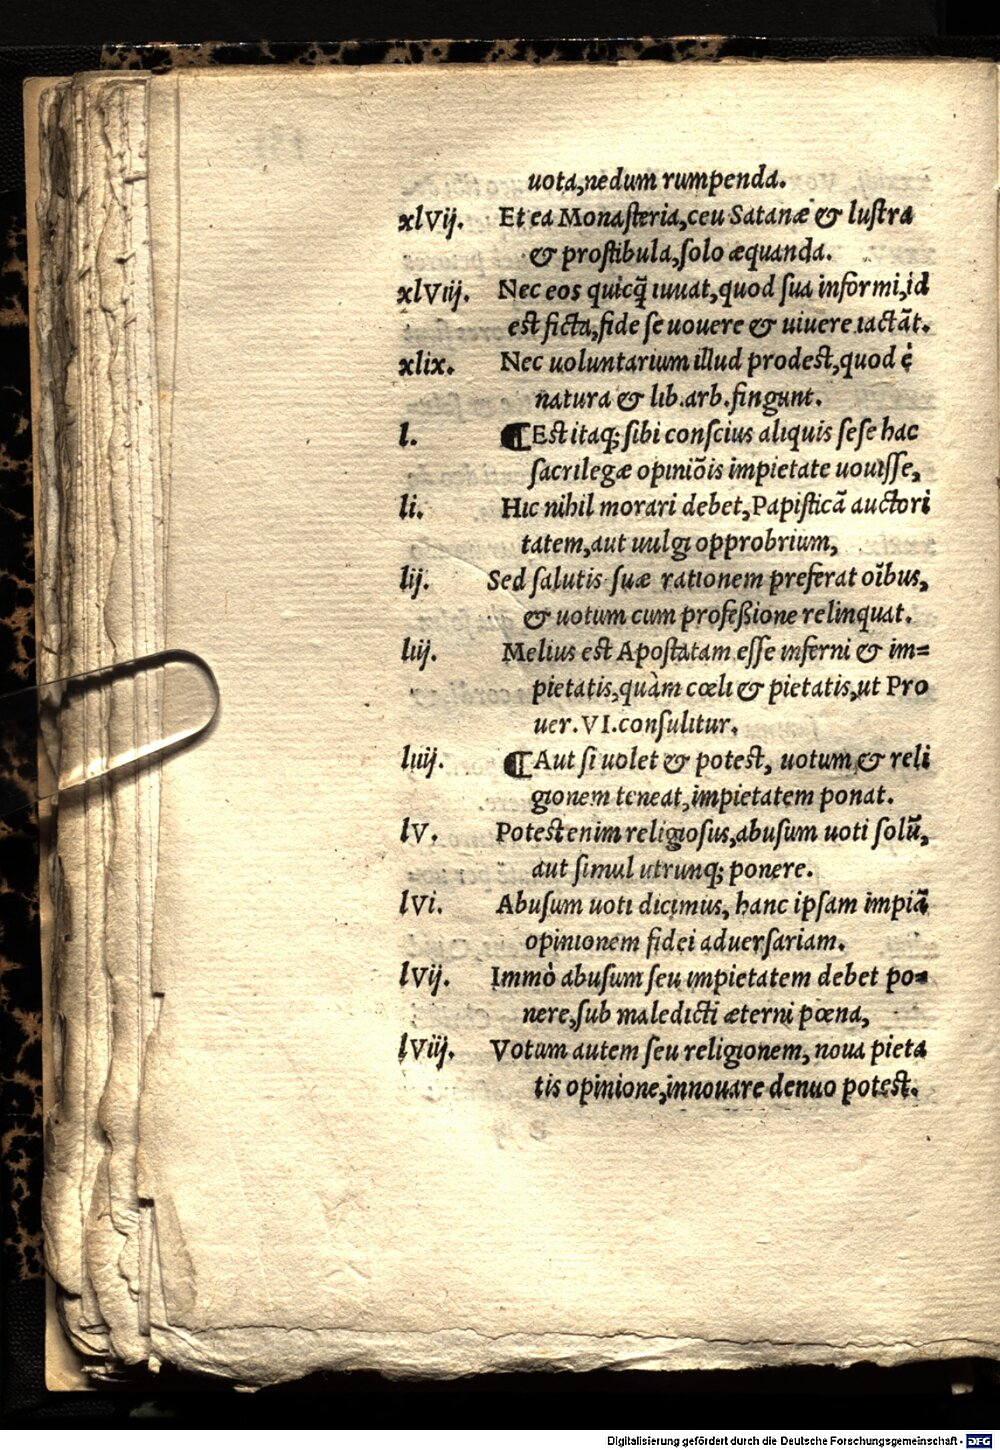 uota,nedum rumpenda.
xlVij. Et ea Monasteria,ceu Satanæ & lustra
& prostibula,solo æquanda.
xlViij. Nec eos quicq̃ iuuat,quod sua informi,id
est ficta,fide se uouere & uiuere iactãt.
xlix. Nec uoluntarium illud prodest,quod ė
natura & lib.arb.fingunt.
l. ¶Est itaq; sibi conscius aliquis sese hac
sacrilegæ opiniõis impietate uouisse,
li. Hic nihil morari debet,Papisticã auctori
tatem,aut uulgi opprobrium,
lij. Sed salutis suæ rationem preferat oĩbus,
& uotum cum professione relinquat.
liij. Melius est Apostatam esse inferni & im=
pietatis,quàm cœli & pietatis,ut Pro
uer.VI.consulitur.
liiij. ¶Aut si uolet & potest, uotum & reli
gionem teneat,impietatem ponat.
lV. Potest enim religiosus,abusum uoti solũ,
aut simul utrunq; ponere.
lVi. Abusum uoti dicimus, hanc ipsam impiã
opinionem fidei aduersariam.
lVij. Immò abusum seu impietatem debet po=
nere,sub maledicti æterni pœna,
lViij. Votum autem seu religionem, noua pieta
tis opinione,innouare denuo potest.
Digitalisierung gefördert durch die Deutsche Forschungsgemeinschaft - DFG